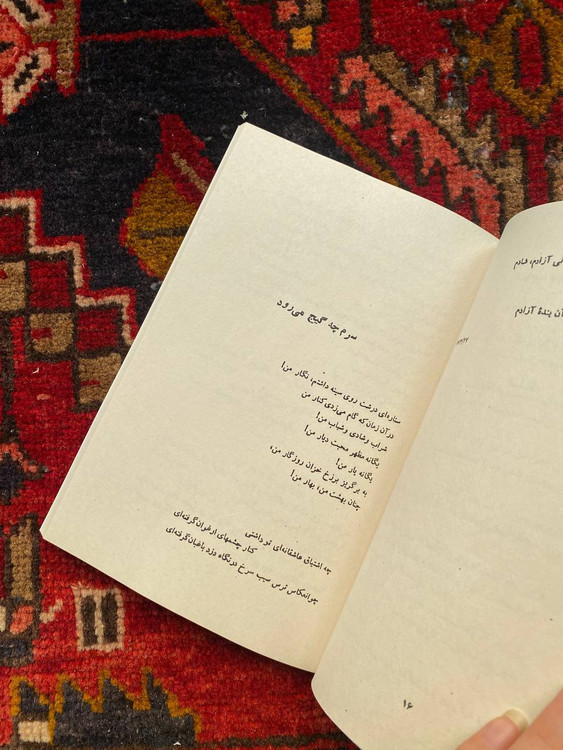 آزادم، شادم
آن بندۀ آزادم
۱۶
سرم چه گیج می‌رود
ستاره‌ای درشت روی سینه داشتم، نگار من!
در آن زمان که گام می‌زدی کنار من
شراب و شادی و شباب من!
یگانه مظهر محبت دیار من!
یگانه یار من!
به برگریز برزخ خزان روزگار من،
چنان بهشت من، بهار من!
چه اشتیاق عاشقانه‌ای تو داشتی
کنار چشمهای ارغوان گرفته‌ای
چو انعکاس ترس سیب سرخ در نگاه دزد باغبان گرفته‌ای